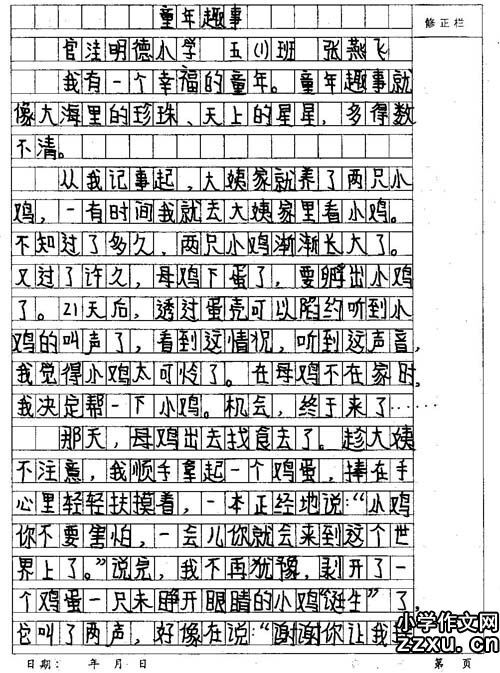 童年趣事
修正栏
官洼明德小学 五(1)班 张燕飞
我有一个幸福的童年。童年趣事就
像大海里的珍珠、天上的星星,多得数
不清。
从我记事起,大姨家就养了两只小
鸡,一有时间我就去大姨家里看小鸡。
不知过了多久,两只小鸡渐渐长大了。
又过了许久,母鸡下蛋了,要孵出小鸡
了。21天后,透过蛋壳可以陷约听到小
鸡的叫声了,看到这情况,听到这声音,
我觉得小鸡太可怜了。在母鸡不在家时,
我决定帮一下小鸡。机会,终于来了……
那天,母鸡出去找食去了。趁大姨
不注意,我顺手拿起一个鸡蛋,捧在手
心里轻轻扶摸着,一本正经地说:“小鸡
你不要害怕,一会儿你就会来到这个世
界上了。”说完,我不再犹豫,剥开了一
个鸡蛋一只未睁开眼睛的小鸡“诞生”了,
它叫了两声,好像在说:“谢谢你让我
日期: 年 月 日 第 页
小学作文网
zzxu.cn